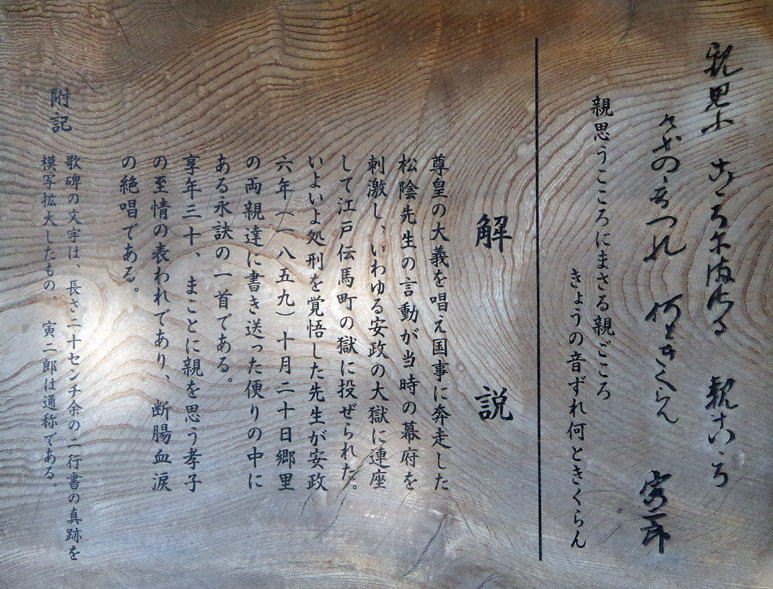 親思ふこころにまさる親こころ
けふの音つれ何ときくらん
寅二郎
親思うこころにまさる親ごころ
きょうの音ずれ何ときくらん
解説
尊皇の大義を唱え国事に奔走した
松陰先生の言動が当時の幕府を
刺激し、いわゆる安政の大獄に連座
して江戸伝馬町の獄に投ぜられた。
いよいよ処刑を覚悟した先生が安政
六年（一八五九）十月二十日郷里
の両親達に書き送った便りの中に
ある永訣の一首である。
享年三十、まことに親を思う孝子
の至情の表われであり、断腸血涙
の絶唱である。
附記
歌碑の文字は、長さ二十センチ余の二行書の真跡を
模写拡大したもの。寅二郎は通称である。